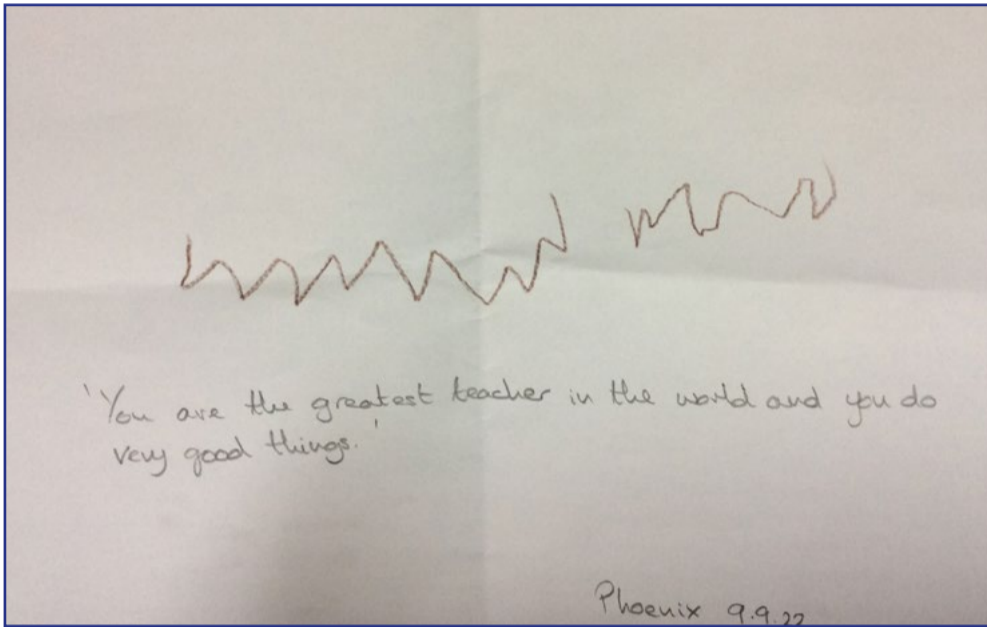 'You are the greatest teacher in the world and you do
very good things.'
Phoenix 9.9.22